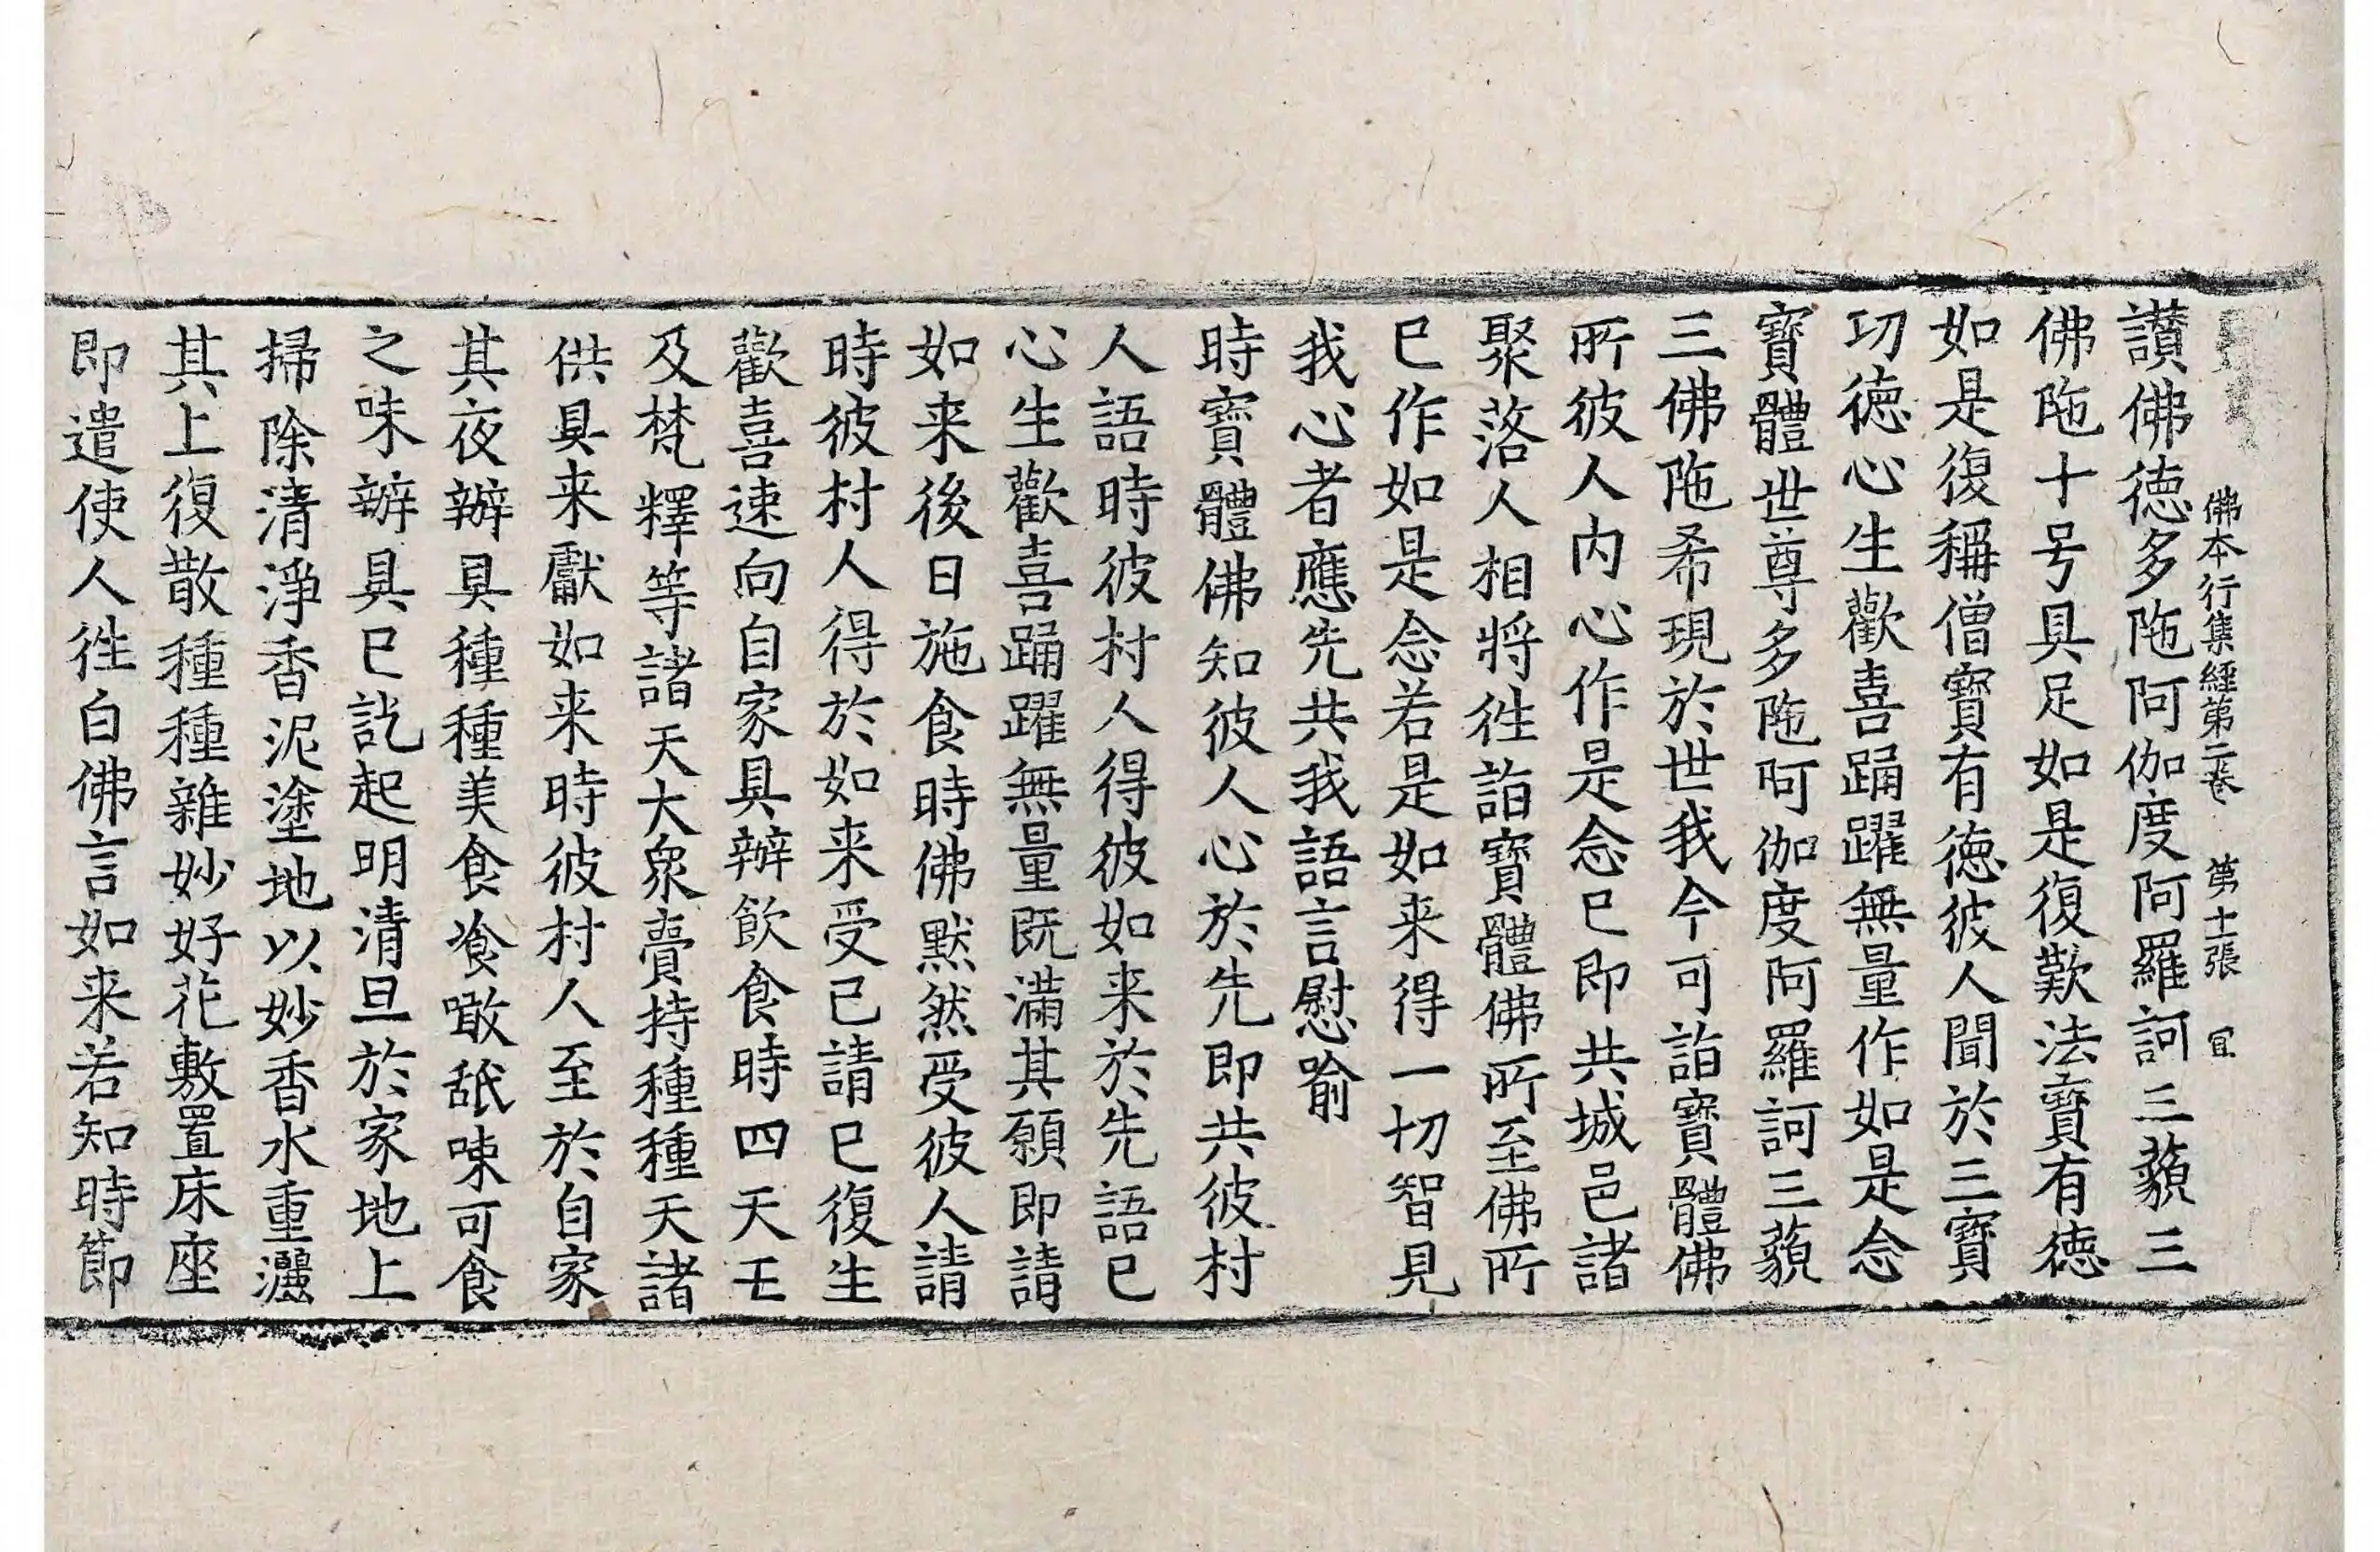 佛本行集經第二卷 第十一張 宜
讃佛德多陁阿伽度阿羅訶三藐三
佛陁十号具足如是復歎法寶有德
如是復稱僧寶有德彼人聞於三寶
功德心生歡喜踊躍無量作如是念
寶體世尊多陁阿伽度阿羅訶三藐
三佛陁希現於世我今可詣寶體佛
所彼人內心作是念已即共城邑諸
聚落人相將往詣寶體佛所至佛所
已作如是念若是如来得一切智見
我心者應先共我語言慰喻
時寶體佛知彼人心於先即共彼村
人語時彼村人得彼如来於先語已
心生歡喜踊躍無量既滿其願即請
如来後日施食時佛黙然受彼人請
時彼村人得於如来受已請已復生
歡喜速向自家具辦飲食時四天王
及梵釋等諸天大衆賷持種種天諸
供具来獻如来時彼村人至於自家
其夜辦具種種美食飡噉舐㖨可食
之味辦具已訖起明清旦於家地上
掃除清淨香泥塗地以妙香水重灑
其上復散種種雜妙好花敷置床座
即遣使人往白佛言如来若知時節